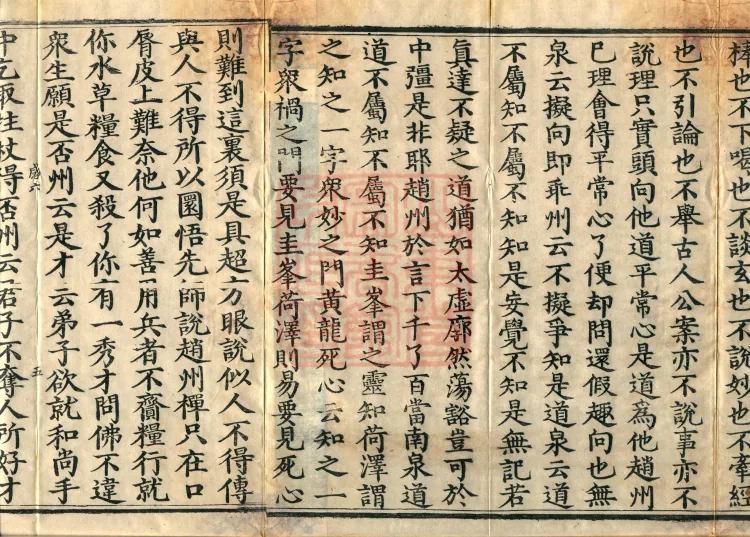 棒也不下喝也不談玄也不說妙也不牽經
也不引論也不舉古人公案亦不說事亦不
說理只實頭向他道平常心是道爲他趙州
已理會得平常心了便却問還假趣向也無
泉云擬向即乖州云不擬爭知是道泉云道
不屬知不屬不知知是妄覺不知是無記若
眞達不疑之道猶如太虛廓然蕩豁豈可於
中彊是非耶趙州於言下千了百當南泉道
道不屬知不屬不知圭峯謂之靈知荷澤謂
之知之一字衆妙之門黃龍死心云知之一
字衆禍之門要見圭峯荷澤則易要見死心
則難到這裏須是具超方眼說似人不得傳
與人不得所以圜悟先師說趙州禪只在口
脣皮上難奈他何如善用兵者不齎糧行就
你水草糧食又殺了你有一秀才問佛不違
衆生願是否州云是才云弟子欲就和尚手
五
中乞取拄杖得否州云君子不奪人所好才